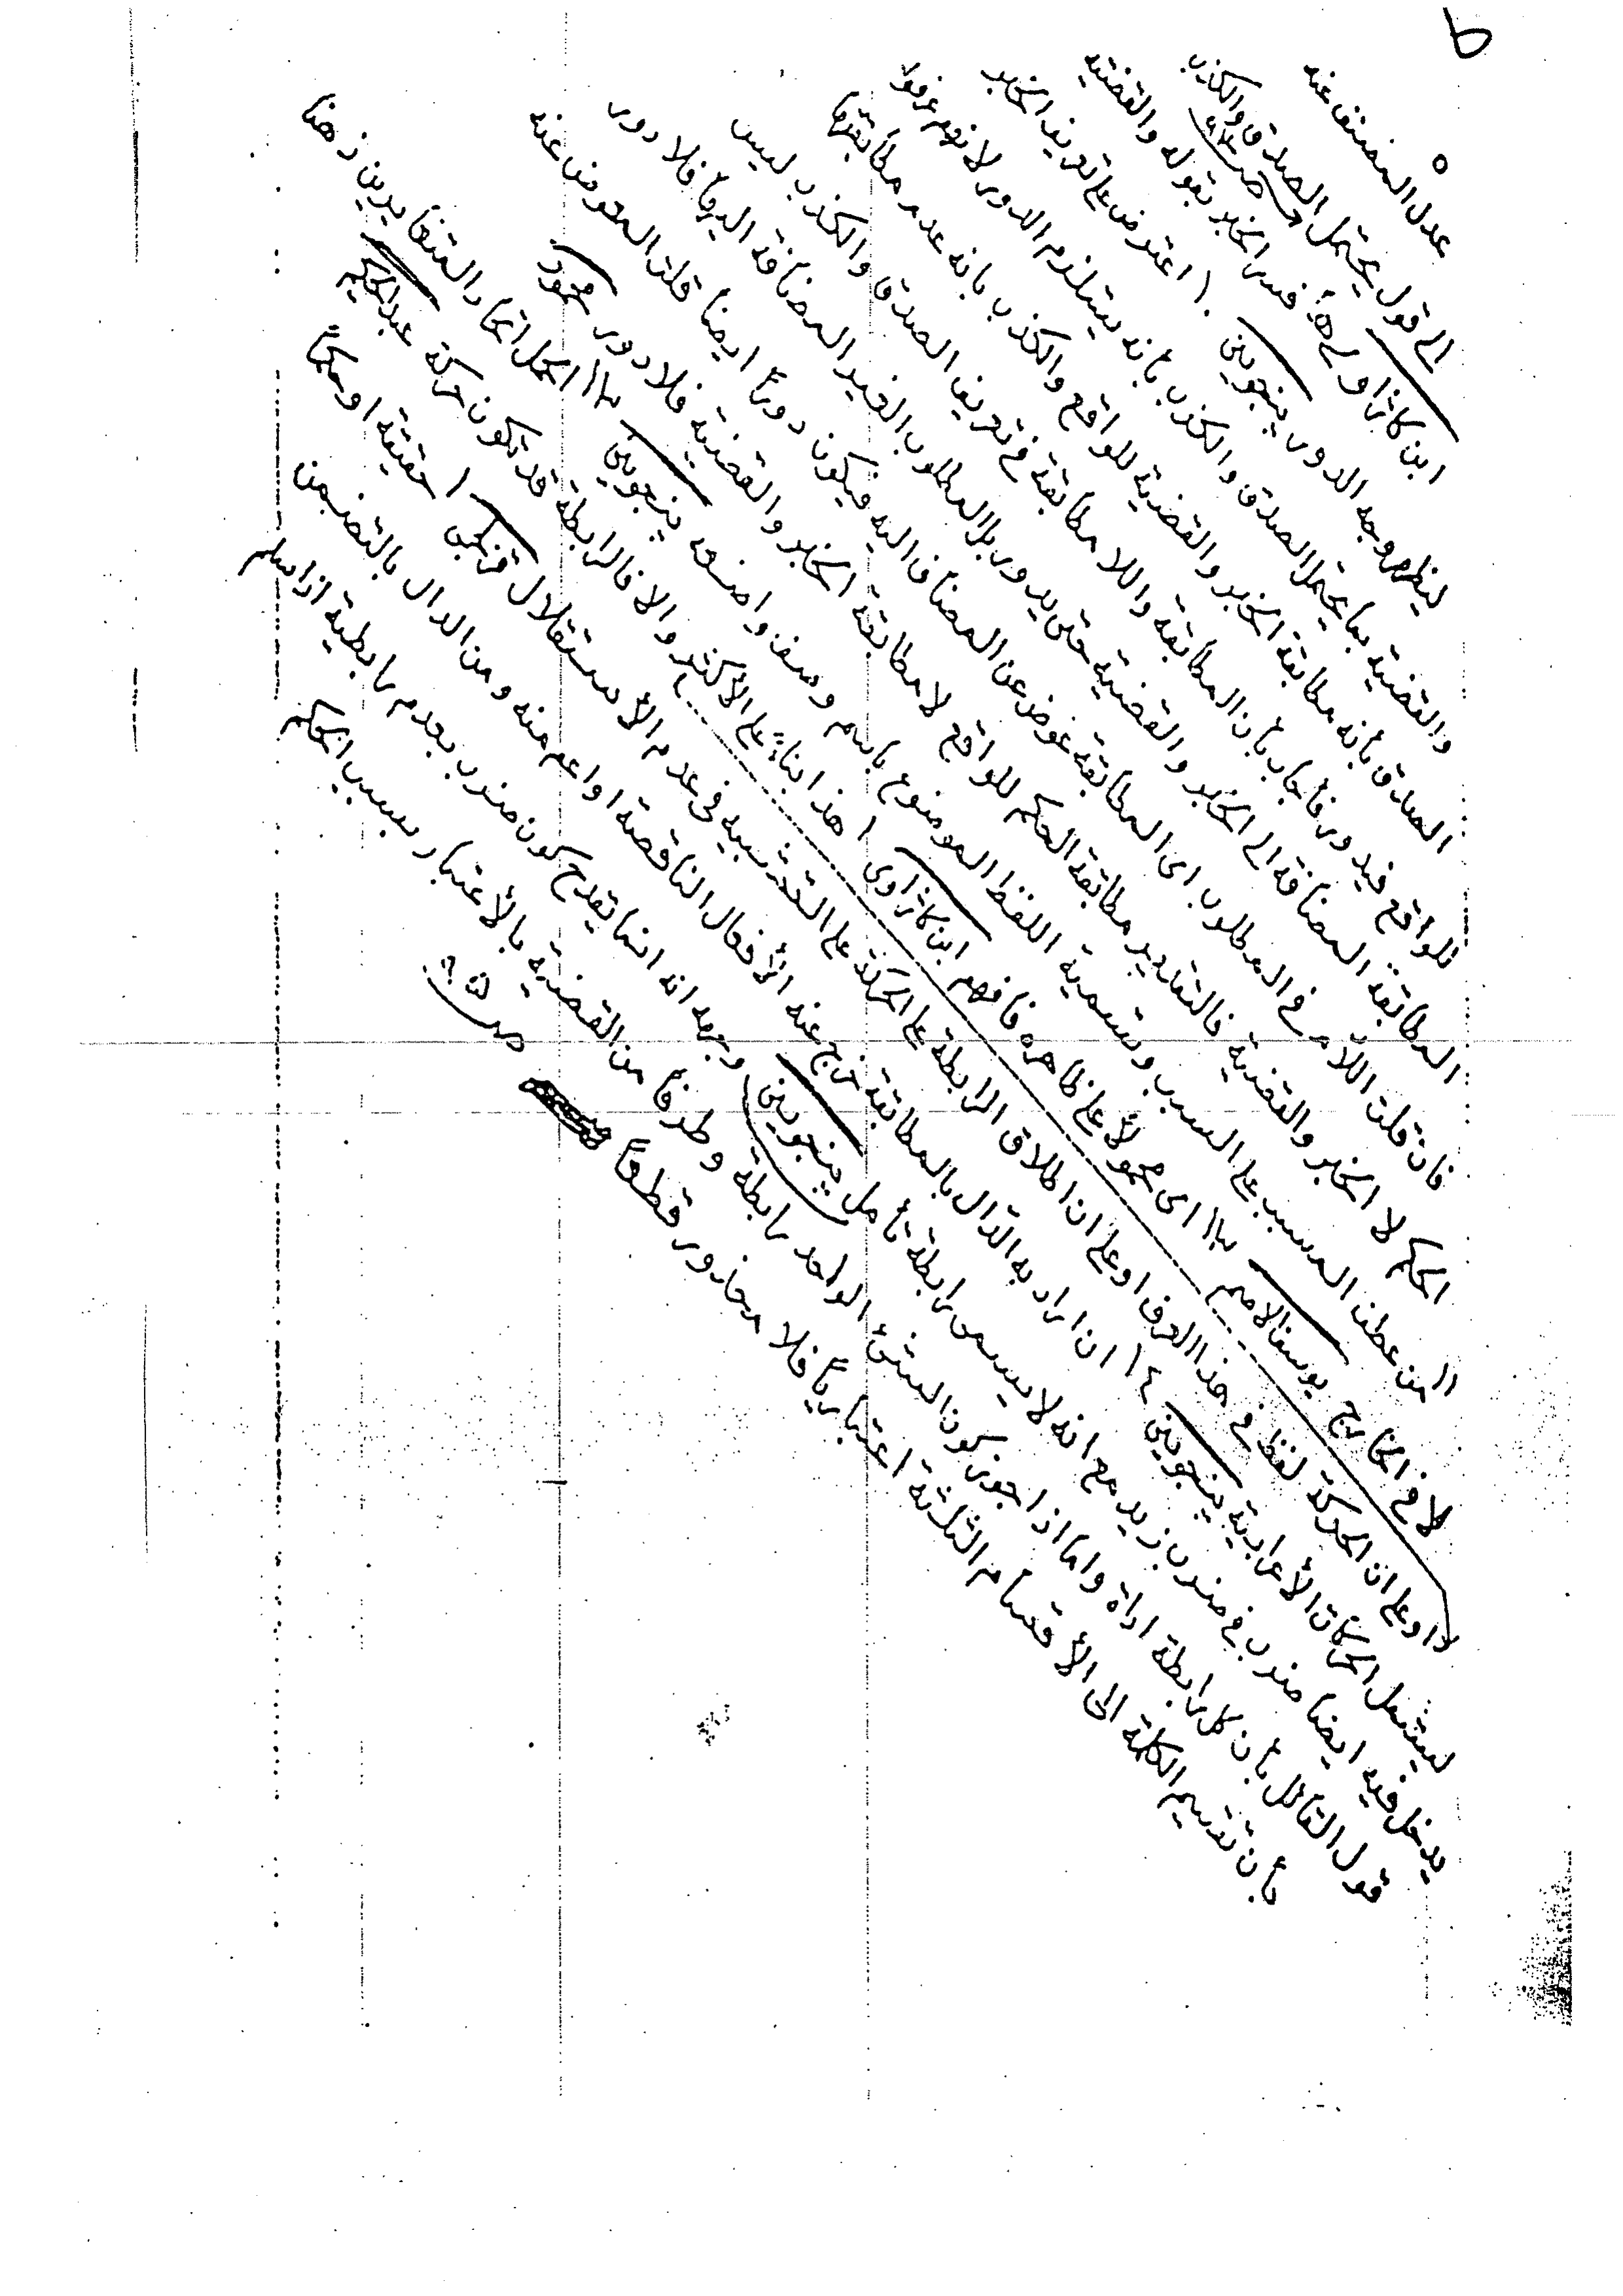 ٥
عدل المصنف عنه
الى قول يحتمل الصدق والكذب
ابن كاژاوى ٩ فسر الخبر بقوله والقضية
ليظهر وجه الدور پنجوينى ١٠ اعترض على تعريف الخبر
والقضية بما يحتمل الصدق والكذب بأنه يستلزم الدور لانهم عرفوا
الصدق بأنه مطابقة الخبر والقضية للواقع والكذب بانه عدم مطابقتها
للواقع فيدور فأجاب بأن المطابقة واللامطابقة فى تعريف الصدق والكذب ليس
المطابقة المضافة الى الخبر والقضية حتى يدور بل المطلوب الغير المضافة اليها فلا دور
فان قلت اللام فى المطلوب اى المطابقة عوض عن المضاف اليه فيكون دورا ايضا قلت المعوض عنه
الحكم لا الخبر والقضية فالتقدير مطابقة الحكم للواقع لا مطابقة الخبر والقضية فلا دور محمود
١١ من عطف المسبب على السبب وتسمية اللفظ الموضوع باسم وصف واضعه پنجوينى ١١ الحمل اتحاد المتغايرين ذهنا
لا فى الخارج يوسف الاصم ١١ اى محمولا على ظاهره فافهم ابن كاژاوى ١ هذا بناءً على الأكثر والا فالرابطة قد تكون حركة عبد الحكيم
١ او على ان الحركة لفظ فى هذا العرف او على ان اطلاق الرابطة على الحركة على التشبيه فى عدم الأستقلال قزلجى ١ حقيقة او حكما
ليشمل الحركات الأعرابية پنجوينى ١٤ ان اراد به الدّال بالمطابقة خرج عنه الأفعال الناقصة او اعم منه ومن الدال بالتضمن
يدخل فيه ايضا ضرب فى ضرب زيد مع انه لا يسمى رابطة تأمل پنجوينى وبعد انه انما يقدح كون ضرب بعدم رابطية اذا سلم
قول القائل بأن كل رابطة اداة واما اذا جوز كون الشئ الواحد رابطة وطرفا من القضية بالأعتبار بسبب الحكم
بأن تقسيم الكلمة الى الأقسام الثلثة اعتباريا فلا محذور قطعا